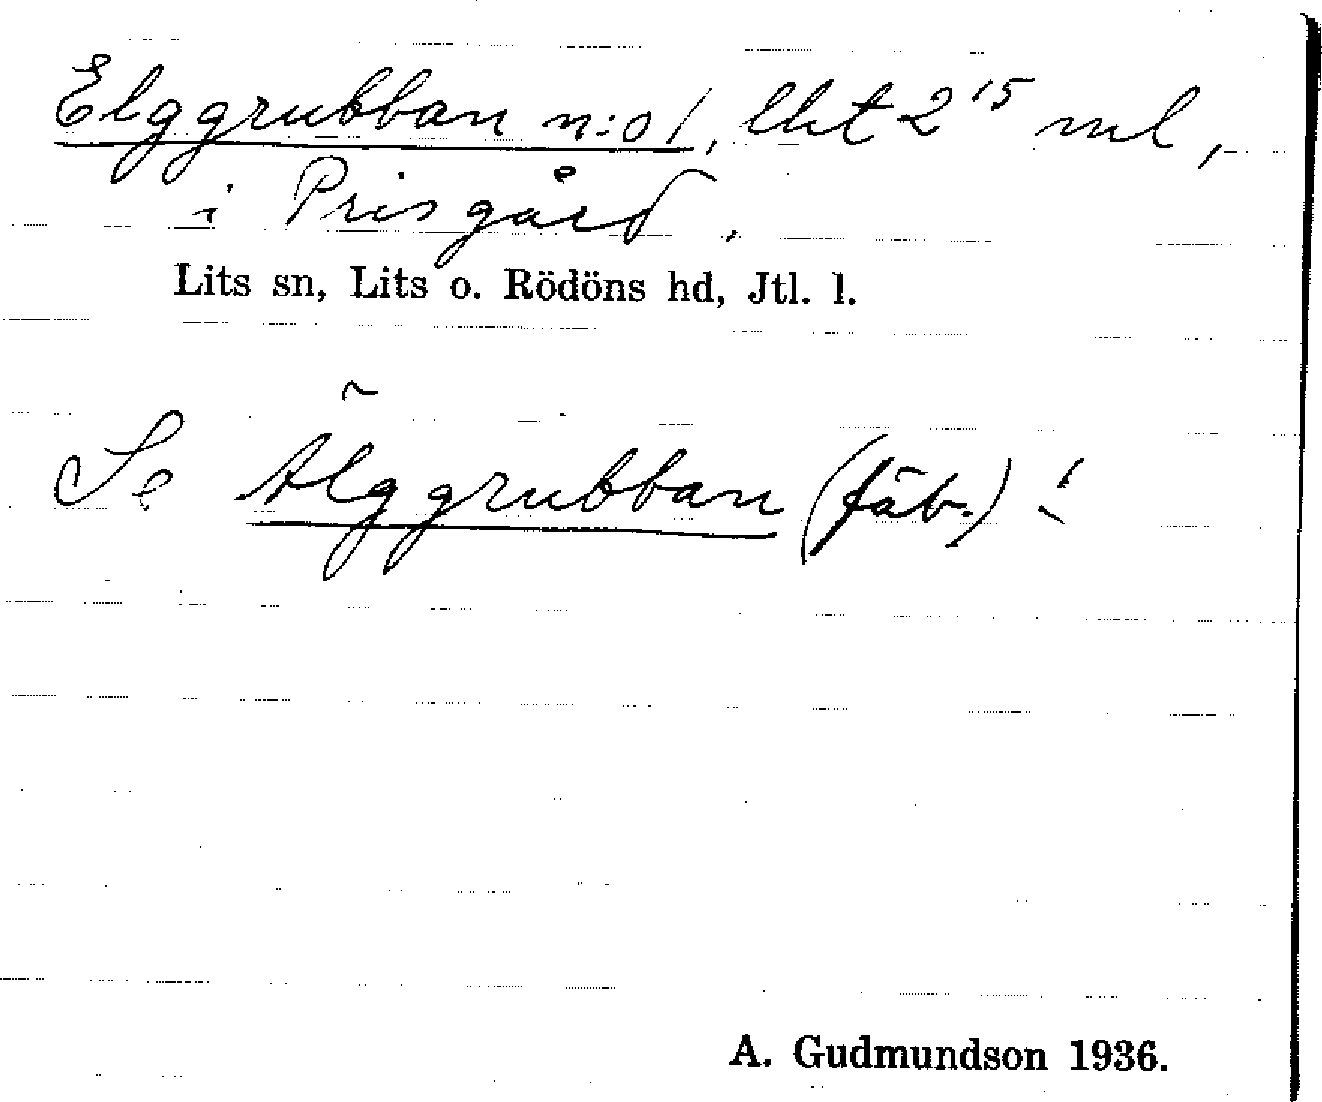 Elggrubban n:o 1, lht 2¹⁵ ml,
i Prisgård.
Lits sn, Lits o. Rödöns hd, Jtl. l.
Se Älggrubban (fäb.)!
A. Gudmundson 1936.